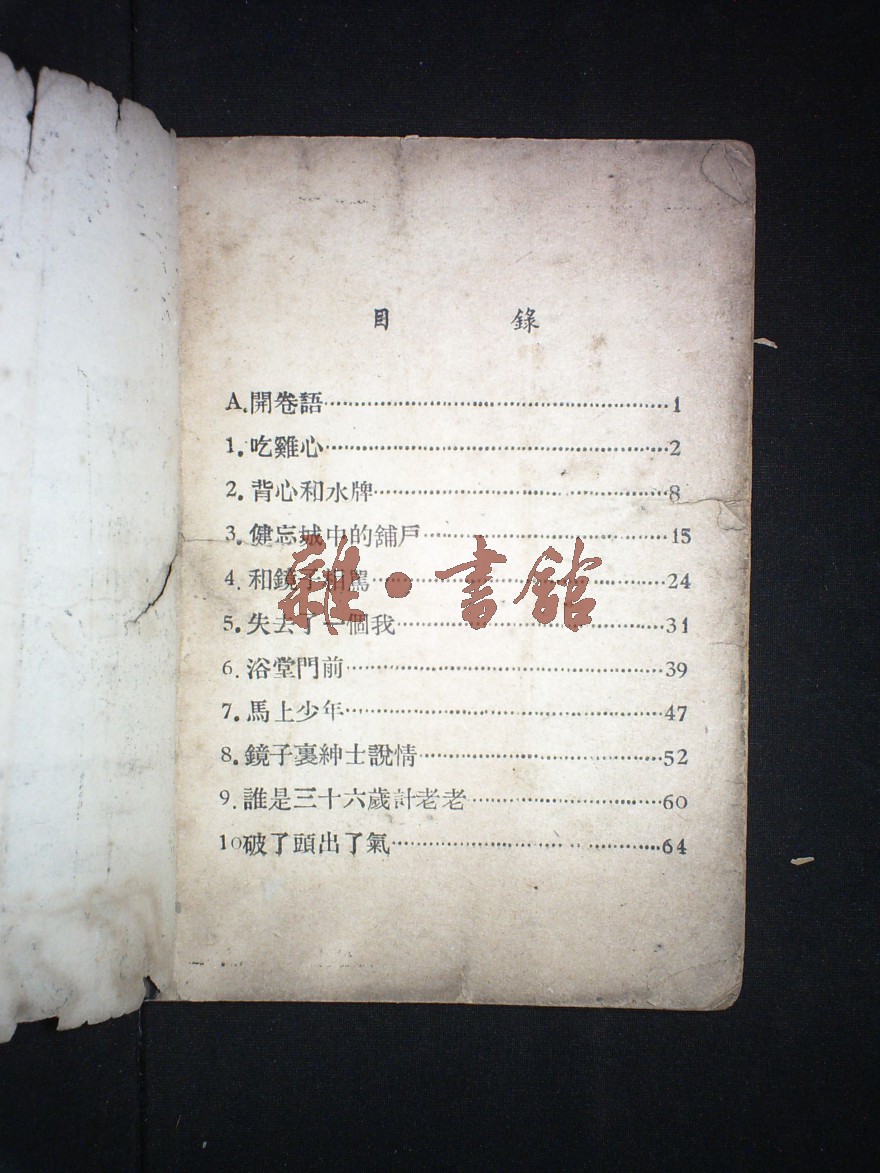 目錄
A.開卷語………1
1.吃雞心………2
2.背心和水牌………8
3.健忘城中的舖戶………15
4.和鏡子相罵………24
5.失去了一個我………31
6.浴堂門前………39
7.馬上少年………47
8.鏡子裏紳士說情………52
9.誰是三十六歲計老老………60
10破了頭出了氣………64
雜·書館